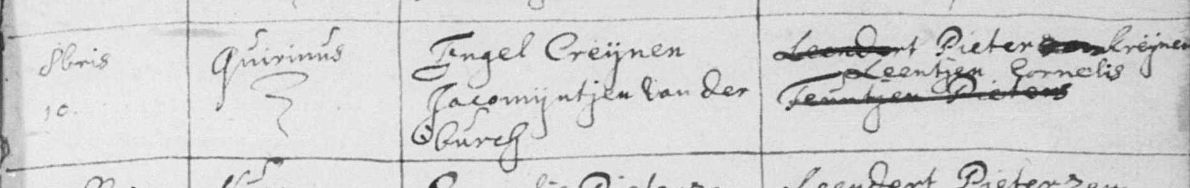 8bris
10.
Quirinus
Engel Creijnen
Jacomijntjen van der
burch
Leendert Pieter Kreijnen
Leentjen Cornelis
Teuntjen Pieters
Pieter
Leendert Pieterzen